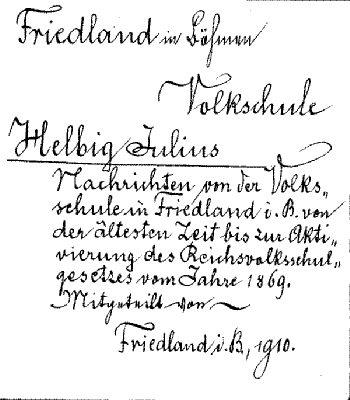 Friedland in Böhmen
Volkschule
Helbig Julius
Nachrichten von der Volks„
schule in Friedland i. B. von
der ältesten Zeit bis zur Akti„
vierung des Reichsvolksschul„
gesetzes vom Jahre 1869.
Mitgeteilt von ~
Friedland i. B., 1910.